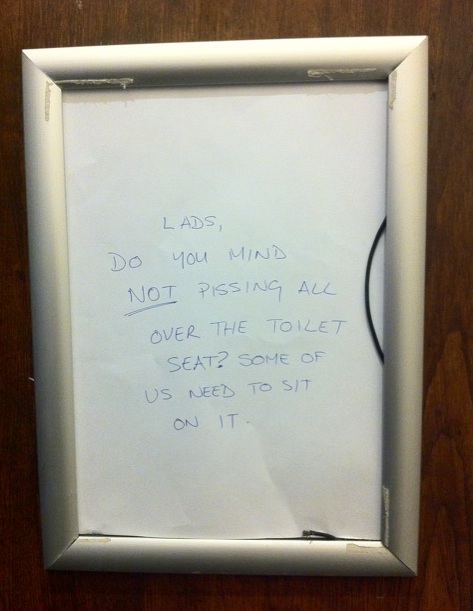 LADS,
DO YOU MIND
NOT PISSING ALL
OVER THE TOILET
SEAT? SOME OF
US NEED TO SIT
ON IT.